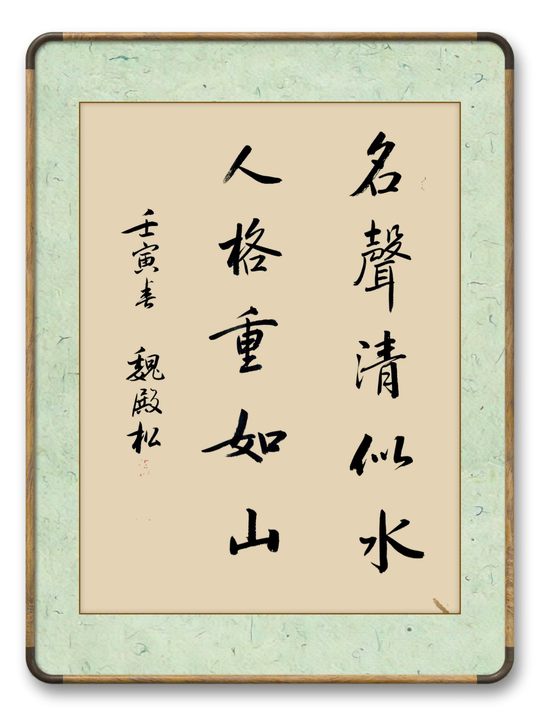 名聲清似水
人格重如山
壬寅春 魏殿松